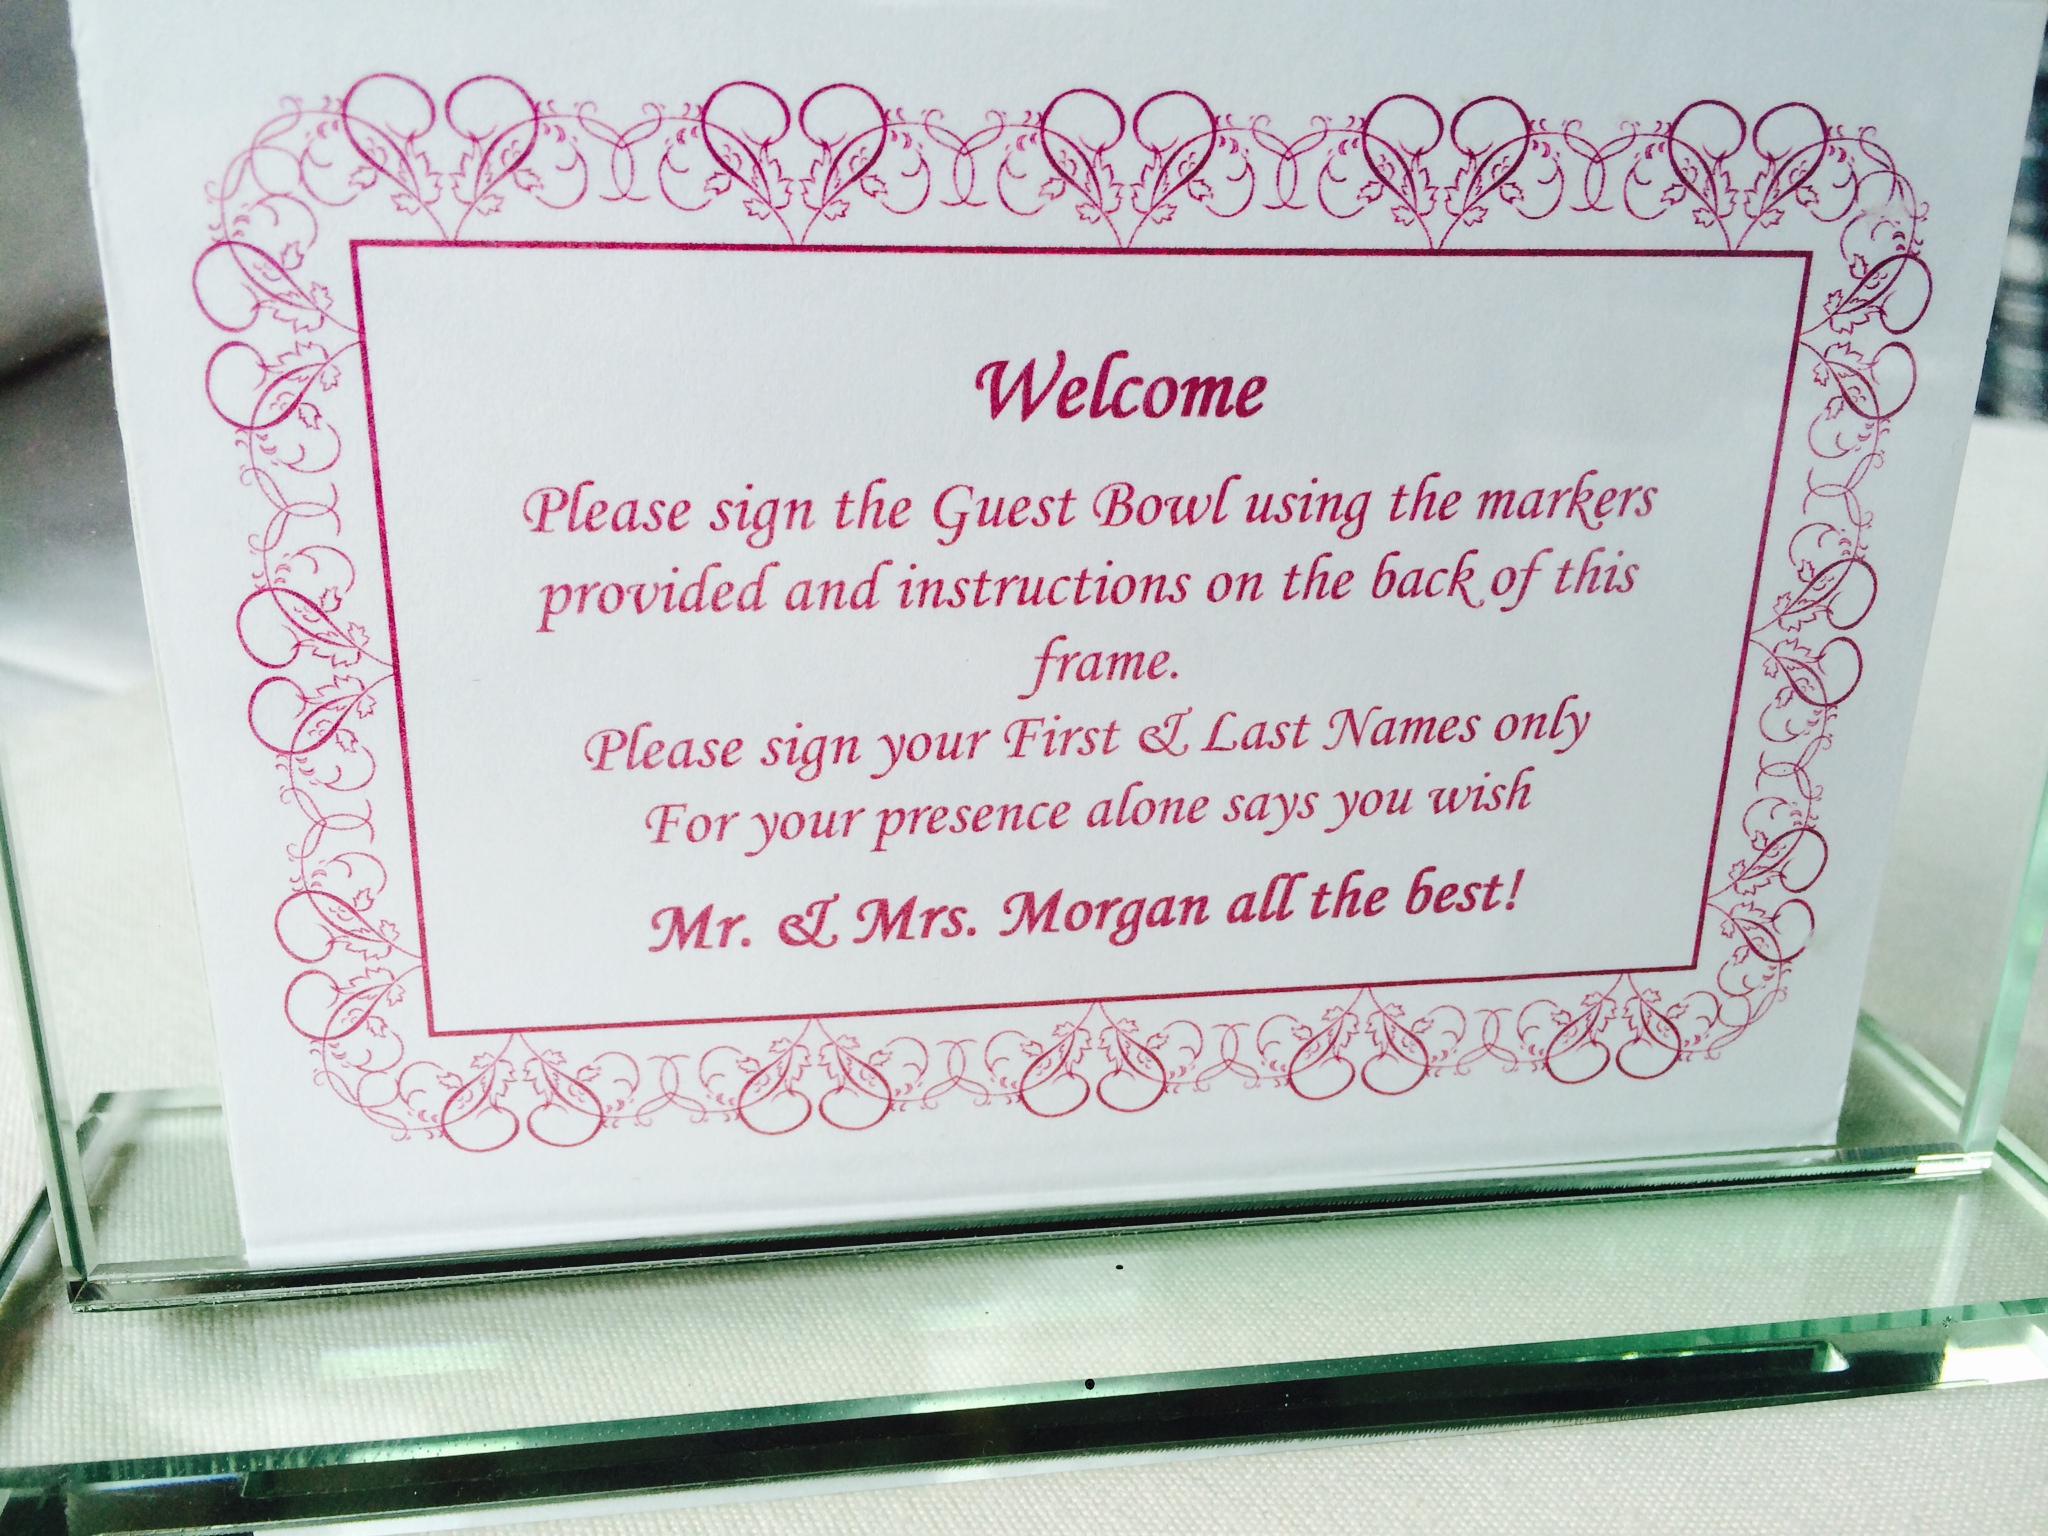 Welcome
Please sign the Guest Bowl using the markers
provided and instructions on the back of this
frame.
Please sign your First & Last Names only
For your presence alone says you wish
Mr. & Mrs. Morgan all the best!